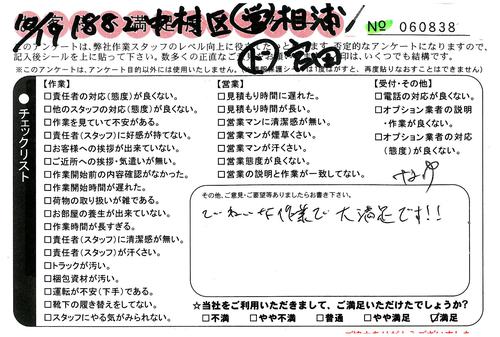 10/9 1882 中村区 営 相浦
ト 宮田
№ 060838
このアンケートは、弊社作業スタッフのレベル向上に役立てたいと
ます。否定的なアンケートになりますので、
記入後シールを上に貼って下さい。数多くの正直なご
印は、いくつでも結構です。
※このアンケートは、アンケート目的以外には使用いたしません。
保護シール
はがすと、再度貼りなおすことはできません。
チェックリスト
【作業】
□責任者の対応(態度)が良くない。
□他のスタッフの対応(態度)が良くない。
□作業を見ていて不安がある。
□責任者(スタッフ)に好感が持てない。
□お客様への挨拶が出来ていない。
□ご近所への挨拶・気遣いが無い。
□作業開始前の内容確認がなかった。
□作業開始時間が遅れた。
□荷物の取り扱いが雑である。
□お部屋の養生が出来ていない。
□作業時間が長すぎる。
□責任者(スタッフ)に清潔感が無い。
□責任者(スタッフ)が汗くさい。
□トラックが汚い。
□梱包資材が汚い。
□運転が不安(下手)である。
□靴下の履き替えをしてない。
□スタッフにやる気がみられない。
【営業】
□見積もり時間に遅れた。
□見積もり時間が長い。
□営業マンに清潔感が無い。
□営業マンが煙草くさい。
□営業マンが汗くさい。
□営業態度が良くない。
□営業の説明と作業が一致してない。
【受付・その他】
□電話の対応が良くない。
□オプション業者の説明
・作業が良くない。
□オプション業者の対応
(態度)が良くない。
その他、ご意見・ご要望等ありましたらお書き下さい。
ていねいな作業で大満足です!!
☆当社をご利用いただきまして、ご満足いただけたでしょうか?
□不満 □やや不満 □普通 □やや満足 ☑満足